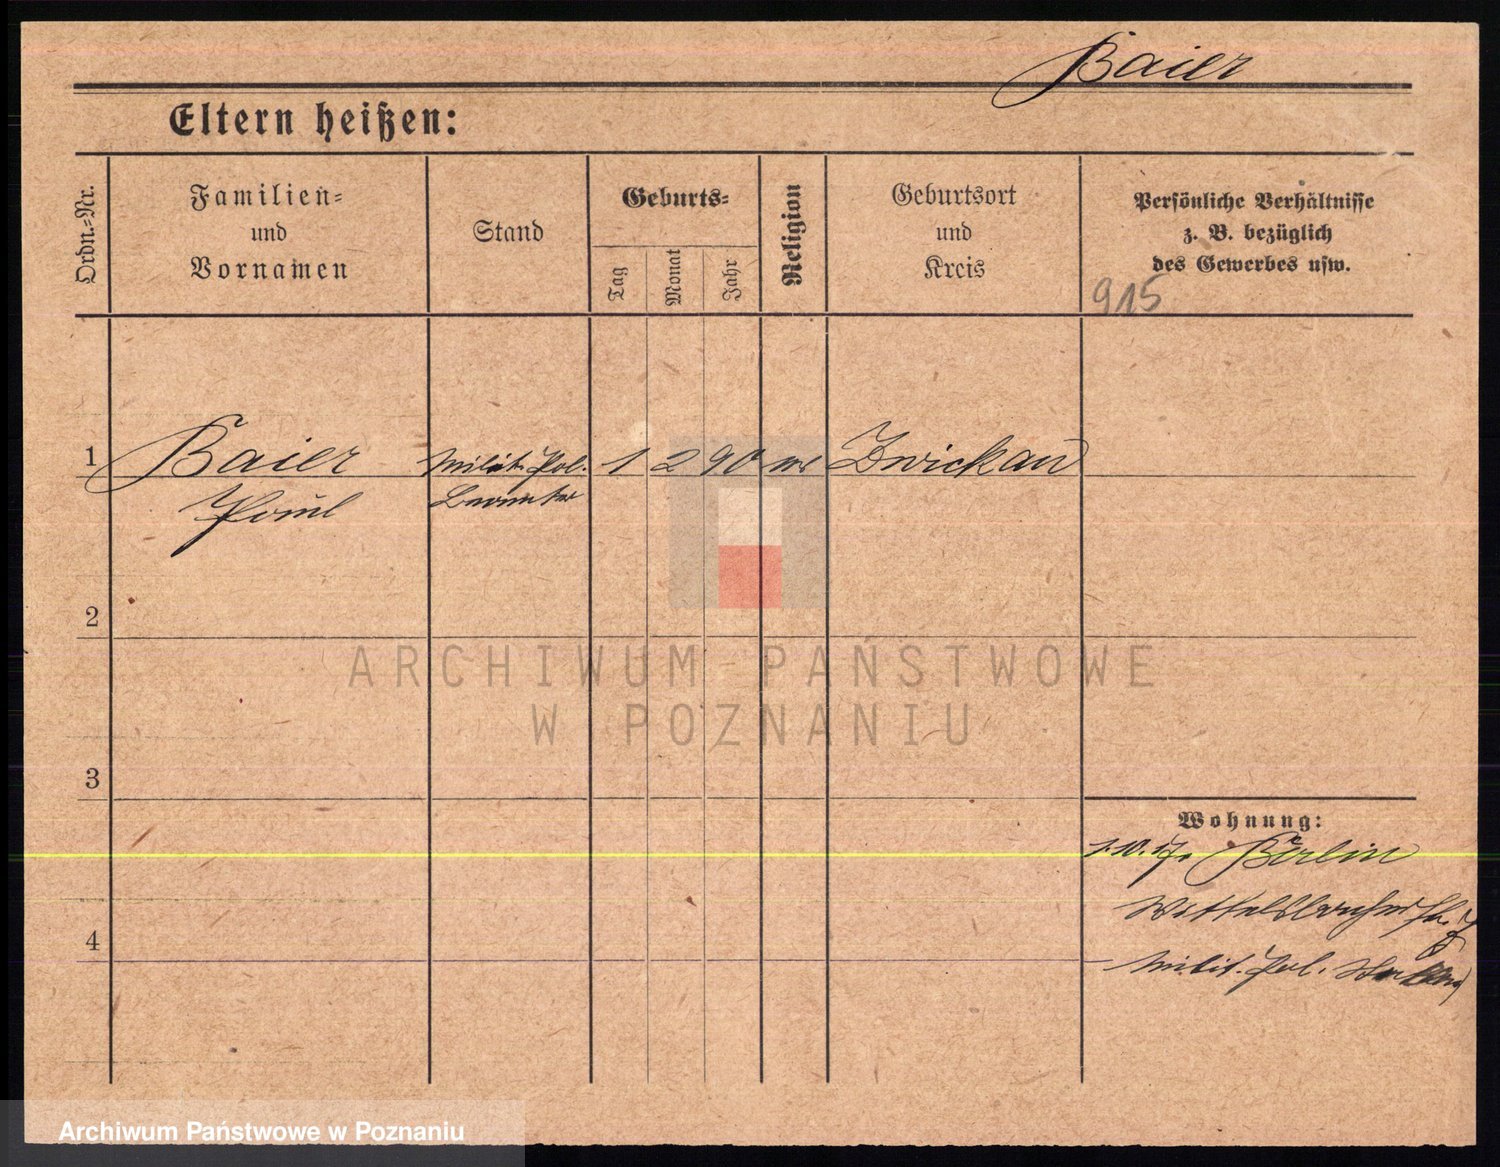 Baier
Eltern heißen:
Ordn.-Nr.
Familien-
und
Vornamen
Stand
Geburts-
Tag
Monat
Jahr
Religion
Geburtsort
und
Kreis
Persönliche Verhältnisse
z. B. bezüglich
des Gewerbes usw.
915
1 Baier Milit. Pol. 1 2 90 Zwickau
Paul
2
3
4
Wohnung:
1.10.17. Berlin
Milit. Pol.
ARCHIWUM PAŃSTWOWE
W POZNANIU
Archiwum Państwowe w Poznaniu